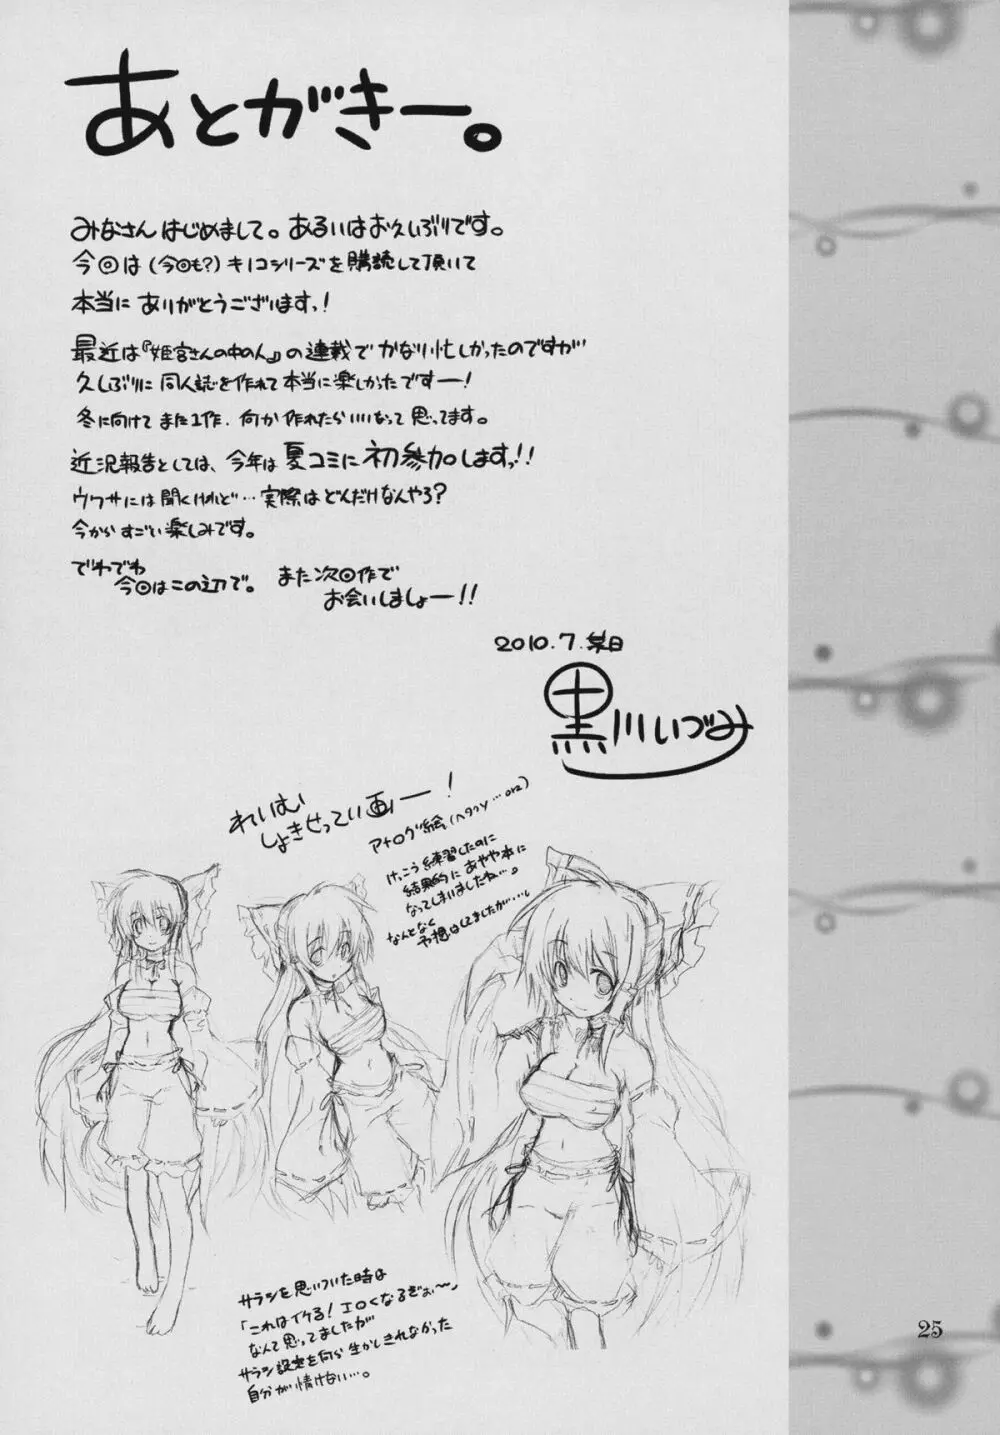 あとがきー。
みなさんはじめまして。あるいはお久しぶりです。
今回は(今回も?)キノコシリーズを購読して頂いて
本当にありがとうございますっ!
最近は『姫宮さんの中の人』の連載でかなり忙しかったのですが
久しぶりに同人誌を作れて本当に楽しかったですー!
冬に向けてまた1作、何か作れたらいいなって思ってます。
近況報告としては、今年は夏コミに初参加しますっ!!
ウワサには聞くけれど…実際はどんだけなんやろ?
今からすごい楽しみです。
でわでわ
今回はこの辺で。
また次回作で
お会いしましょー!!
2010.7.某日
黒川いづみ
れいむ
しょきせってい画ー!
アナログ絵(ヘタクソ…orz)
けっこう練習したのに
結果的にあやや本に
なってしまいましたね…。
なんとなく
予想はしてましたが…し
サラシを思いついた時は
「これはイケる!エロくなるぞぉ〜」
なんて思ってましたが
サラシ設定を何ら生かしきれなかった
自分が情けない…。
25